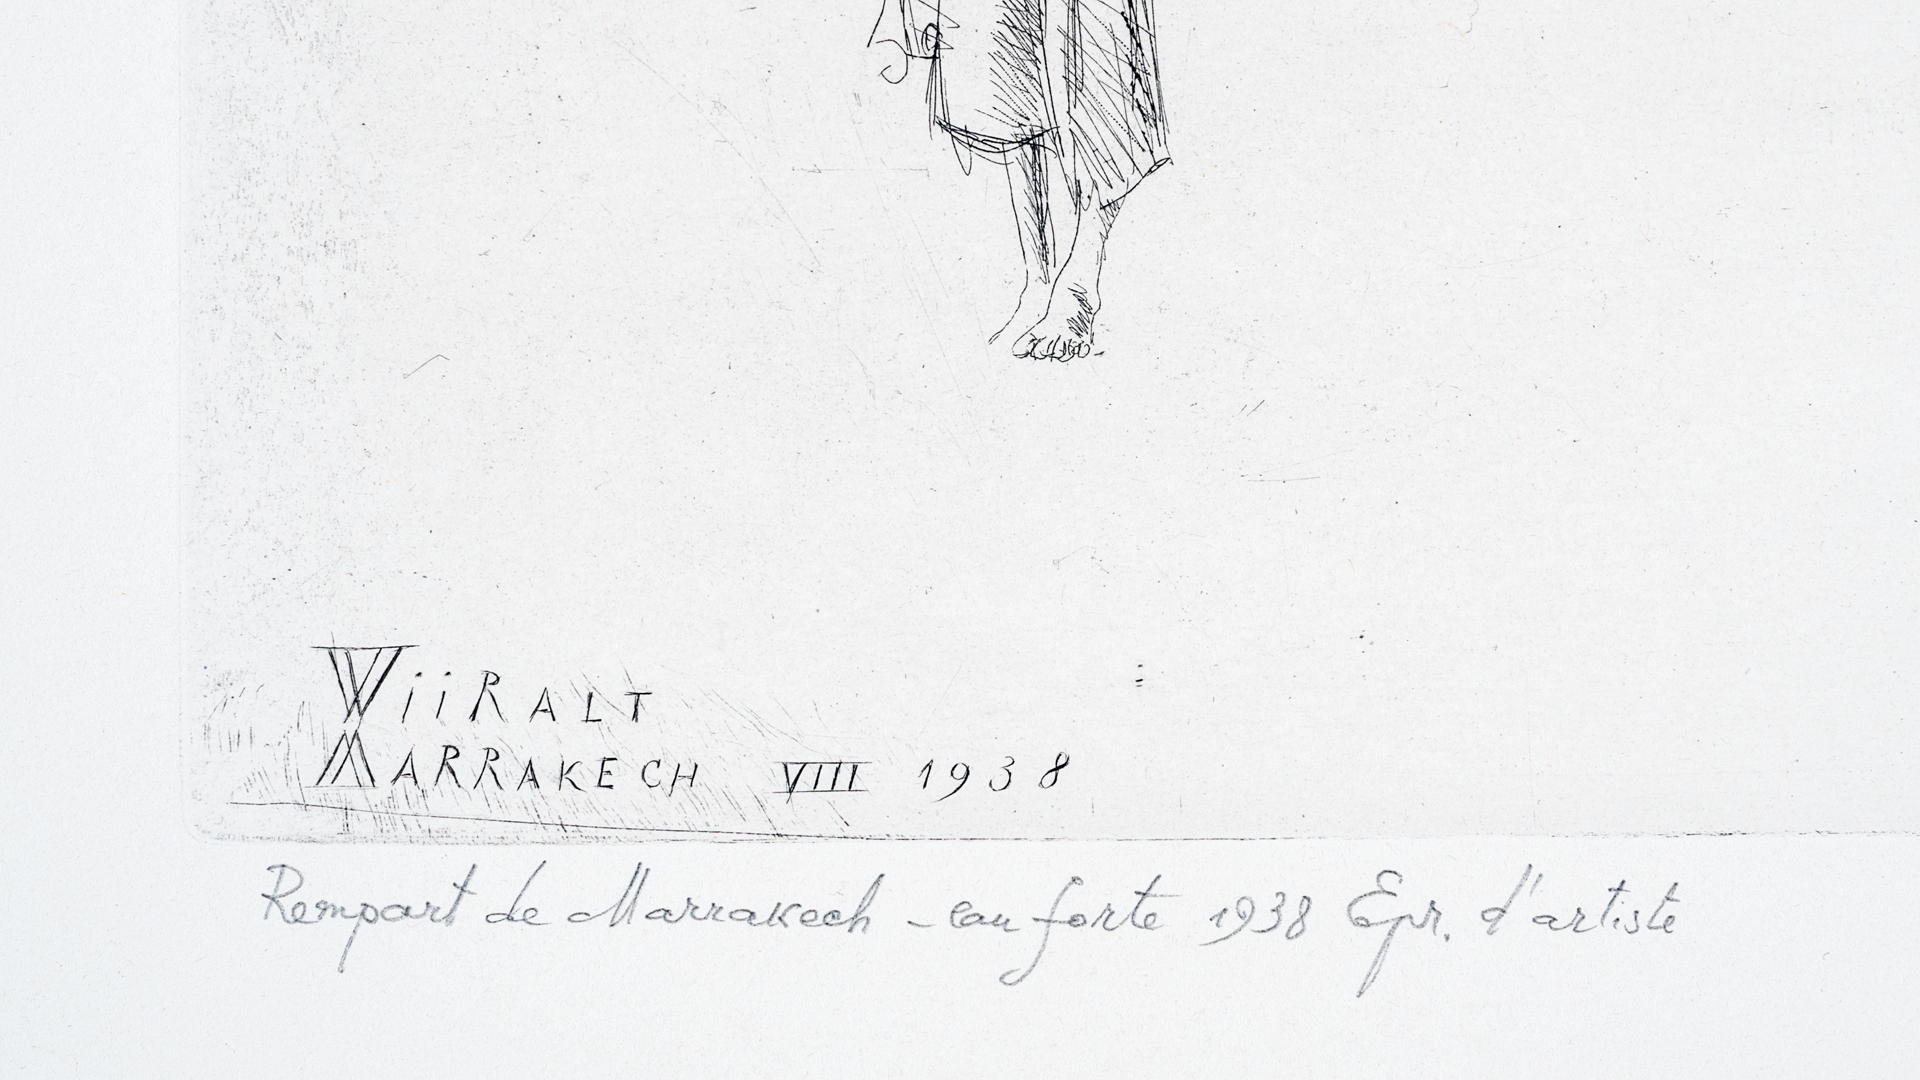 WiiRALT
MARRAKECH VIII 1938
Rempart de Marrakech - eau forte 1938 Epr. d'artiste